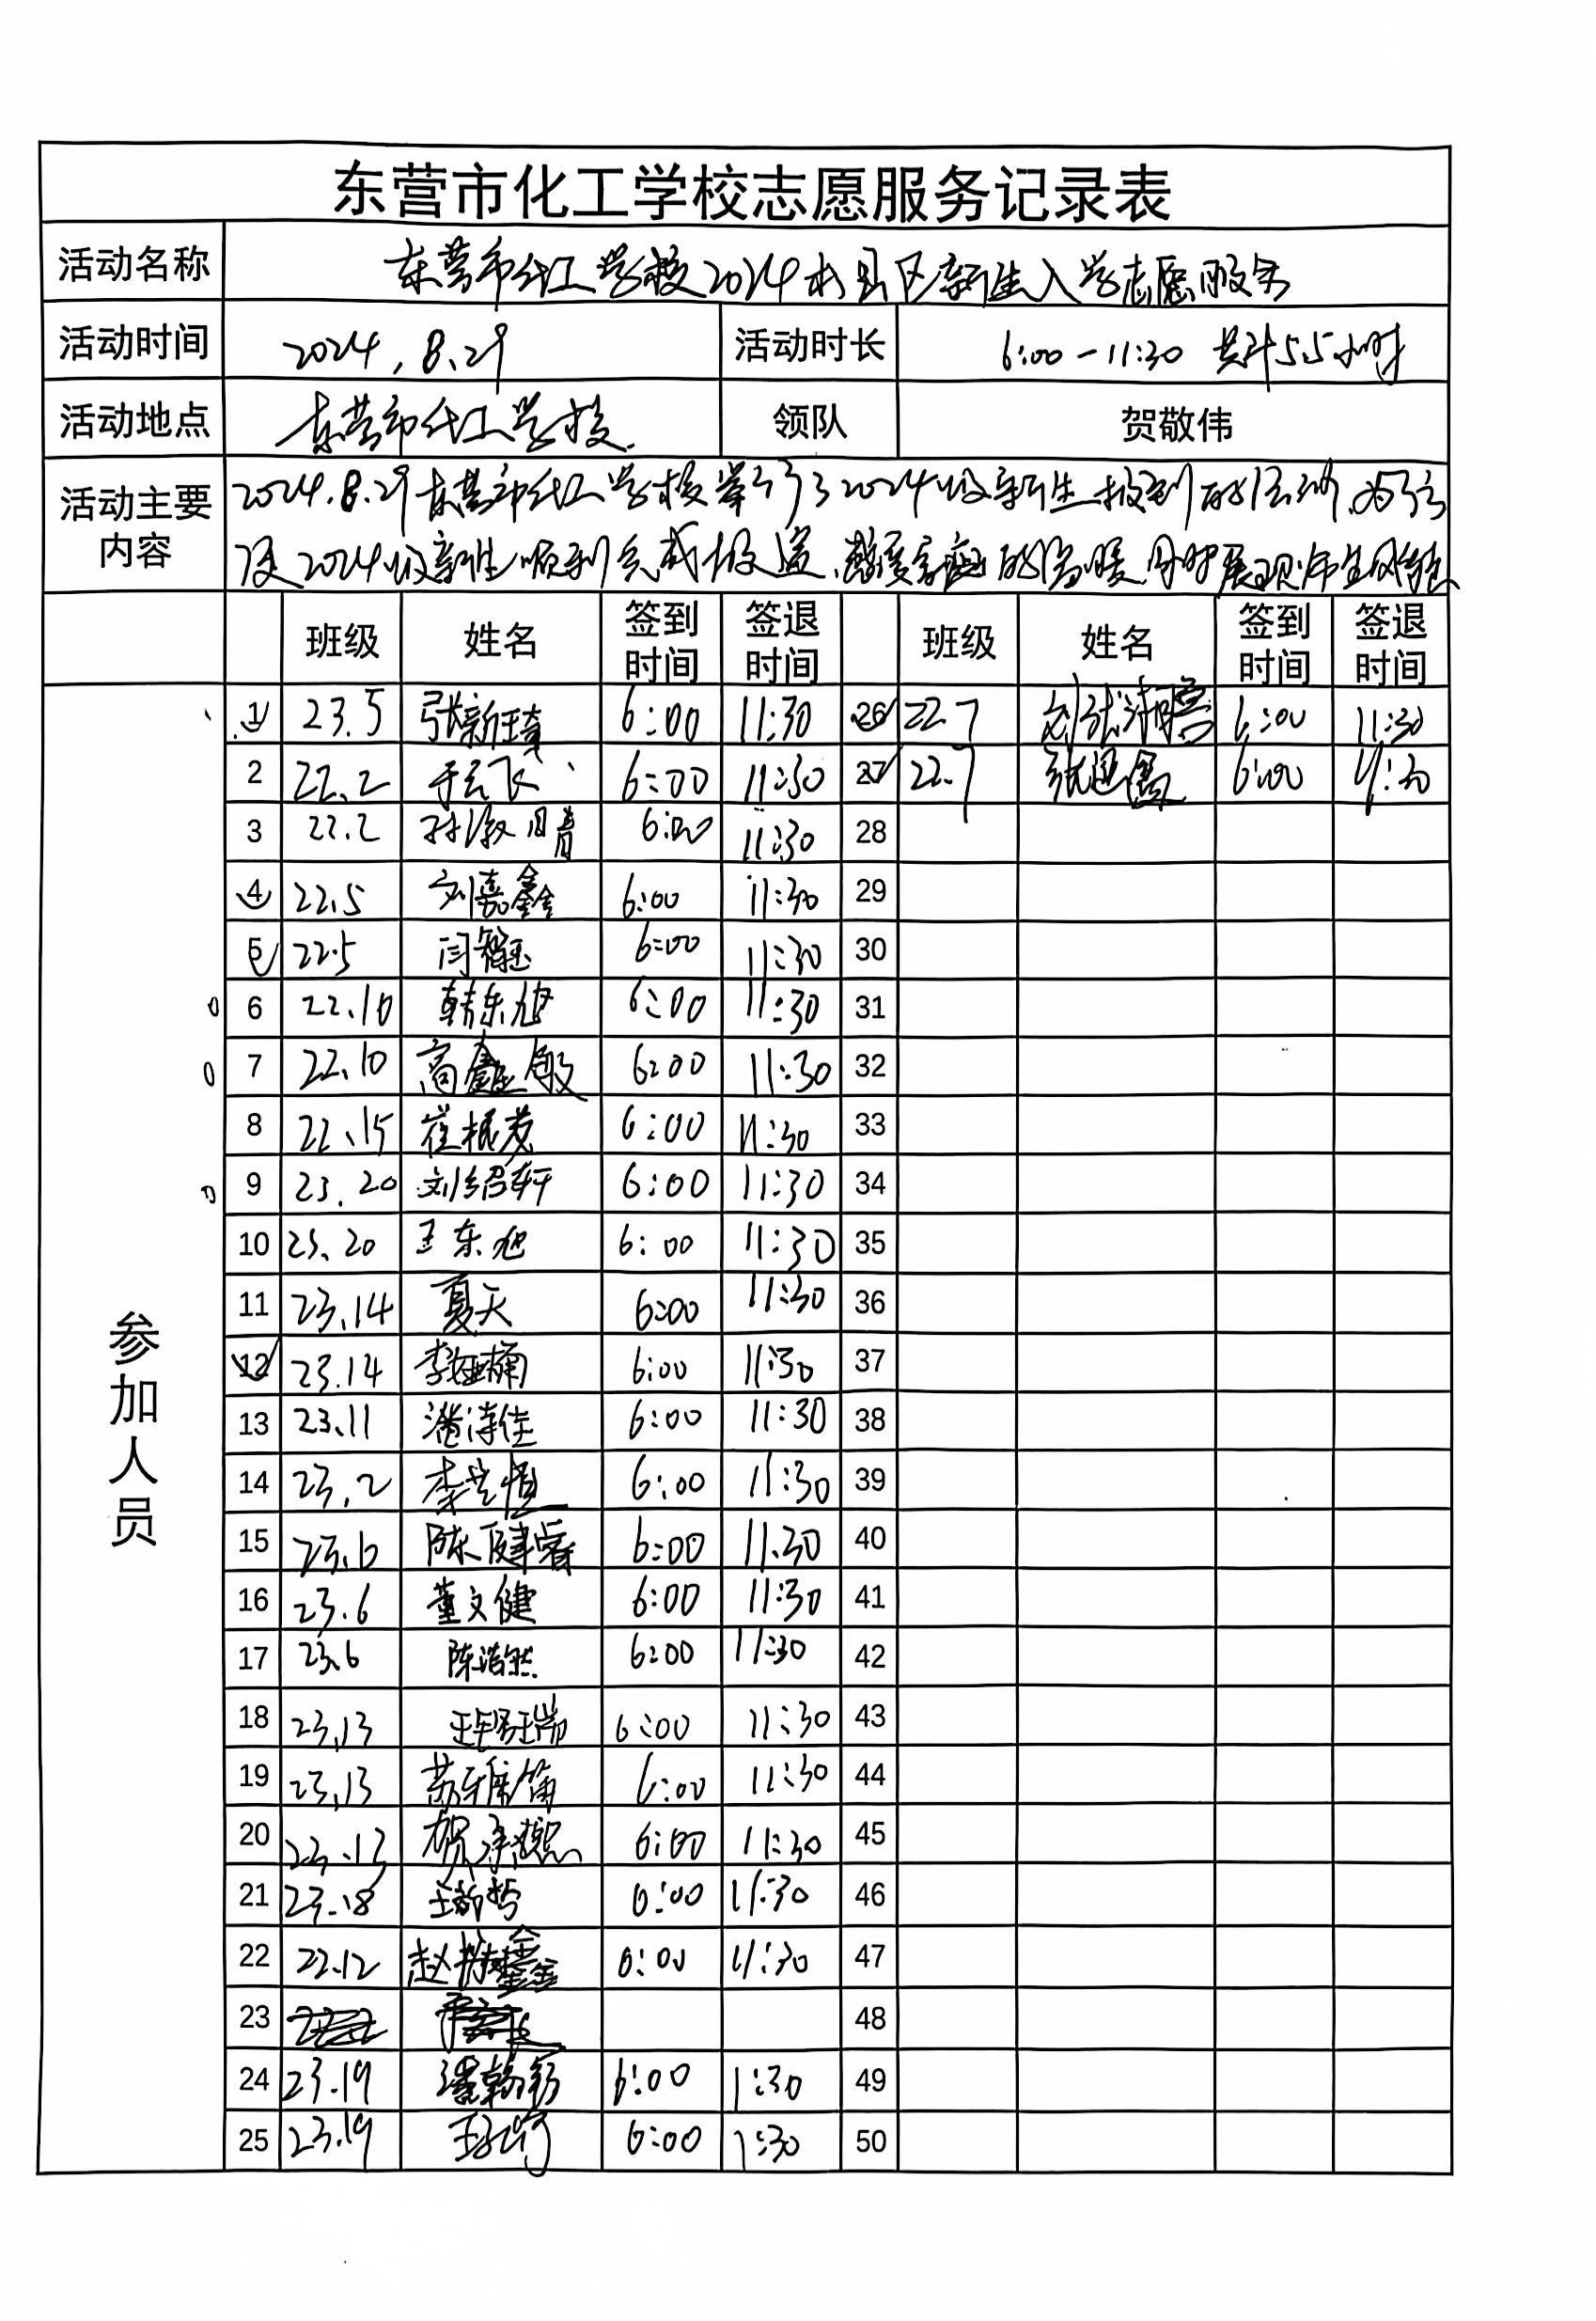 东营市化工学校志愿服务记录表
活动名称 东营市化工学校2024 县区新生入学志愿服务
活动时间 2024.8.29 活动时长 6:00-11:30 共计5.5小时
活动地点 东营市化工学校. 领队 贺敬伟
活动主要内容 2024.8.29东营市化工学校举行了2024级新生报到的活动,为了
2024级新生顺利完成报道、感受家庭的温暖,同时展现师生风
班级 姓名 签到时间 签退时间 班级 姓名 签到时间 签退时间
参加人员
1 23.5 张新琦 6:00 11:30 26 22.7 刘 6:00 11:30
2 22.2 于云飞 6:00 11:30 27 22.7 鑫 6:00 11:30
3 22.2 孙 6:00 11:30 28
4 22.5 刘嘉鑫 6:00 11:30 29
5 22.5 闫 6:00 11:30 30
6 22.10 韩东旭 6:00 11:30 31
7 22.10 高鑫 6:00 11:30 32
8 22.15 崔振茂 6:00 11:30 33
9 23.20 刘绍轩 6:00 11:30 34
10 23.20 王东旭 6:00 11:30 35
11 23.14 夏天 6:00 11:30 36
12 23.14 李 楠 6:00 11:30 37
13 23.11 佳 6:00 11:30 38
14 23.2 李 恒 6:00 11:30 39
15 23.6 陈健睿 6:00 11:30 40
16 23.6 董文健 6:00 11:30 41
17 23.6 陈浩然 6:00 11:30 42
18 23.13 王 瑞 6:00 11:30 43
19 23.13 6:00 11:30 44
20 23.13 贺 熙 6:00 11:30 45
21 23.18 王 哲 6:00 11:30 46
22 22.12 赵 鑫 6:00 11:30 47
23 48
24 23.19 潘 6:00 1:30 49
25 23.19 王 6:00 1:30 50